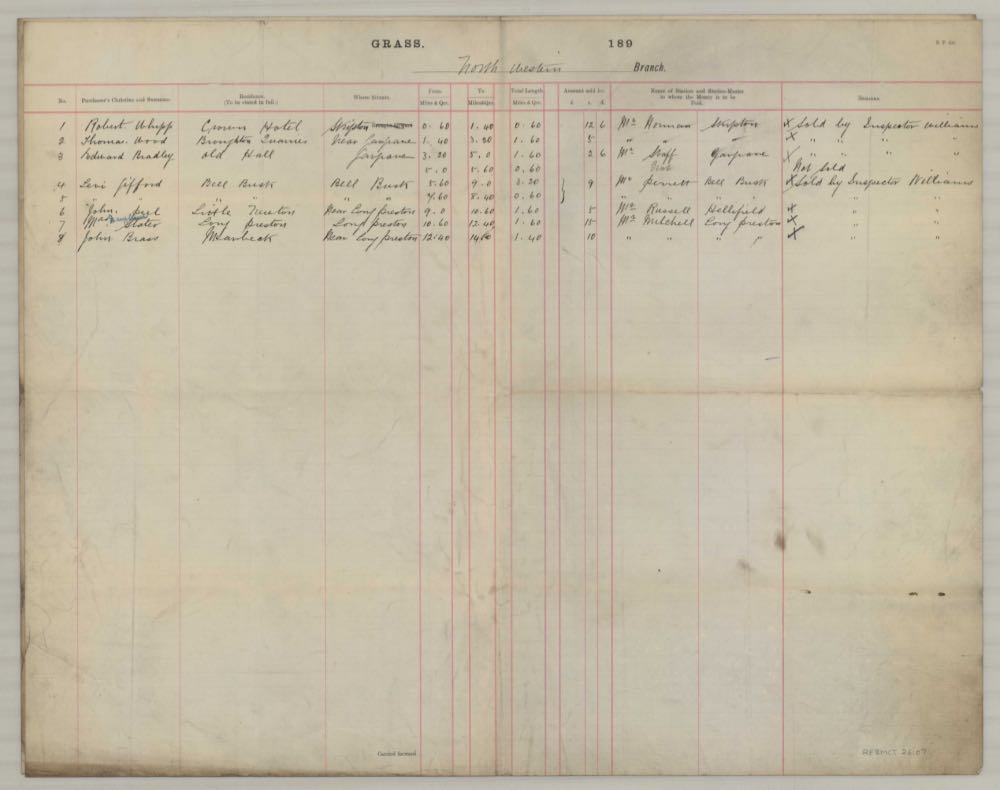 GRASS. 189
North Western Branch.
No. Purchaser's Christian and Surname. Residence. (To be stated in full.) Where Situate. From Miles & Qrs. To Miles & Qrs. Total Length Miles & Qrs. Amount sold for £ s. d. Name of Station and Station-Master to whom the Money is to be Paid. Remarks.
1 Robert Whipp Crown Hotel Skipton 0. 60 1. 40 0. 60 12 6 Mr Norman Skipton X Sold by Inspector Williams
2 Thomas Wood Broughton Quarries Near Gargrave 1. 40 3. 20 1. 60 5 " " X " " " "
3 Edward Bradley Old Hall Gargrave 3. 20 5. 0 1. 60 2 6 Mr Gargrave X " " " "
5. 0 5. 60 0. 60 Not Sold
4 Levi Gifford Bell Busk Bell Busk 5. 60 9. 0 3. 20 } 9 Mr Perrett Bell Busk X Sold by Inspector Williams
5 " " " 7. 60 8. 40 0. 60
6 John Little Newton Near Long Preston 9. 0 10. 60 1. 60 5 Mr Russell Hellifield X " "
7 Slater Long Preston Long Preston 10. 60 12. 40 1. 60 15 Mr Mitchell Long Preston X " "
8 John Brass Near Long Preston 12. 40 1. 40 10 " " " " X " "
Carried forward
REBMCT 26:07